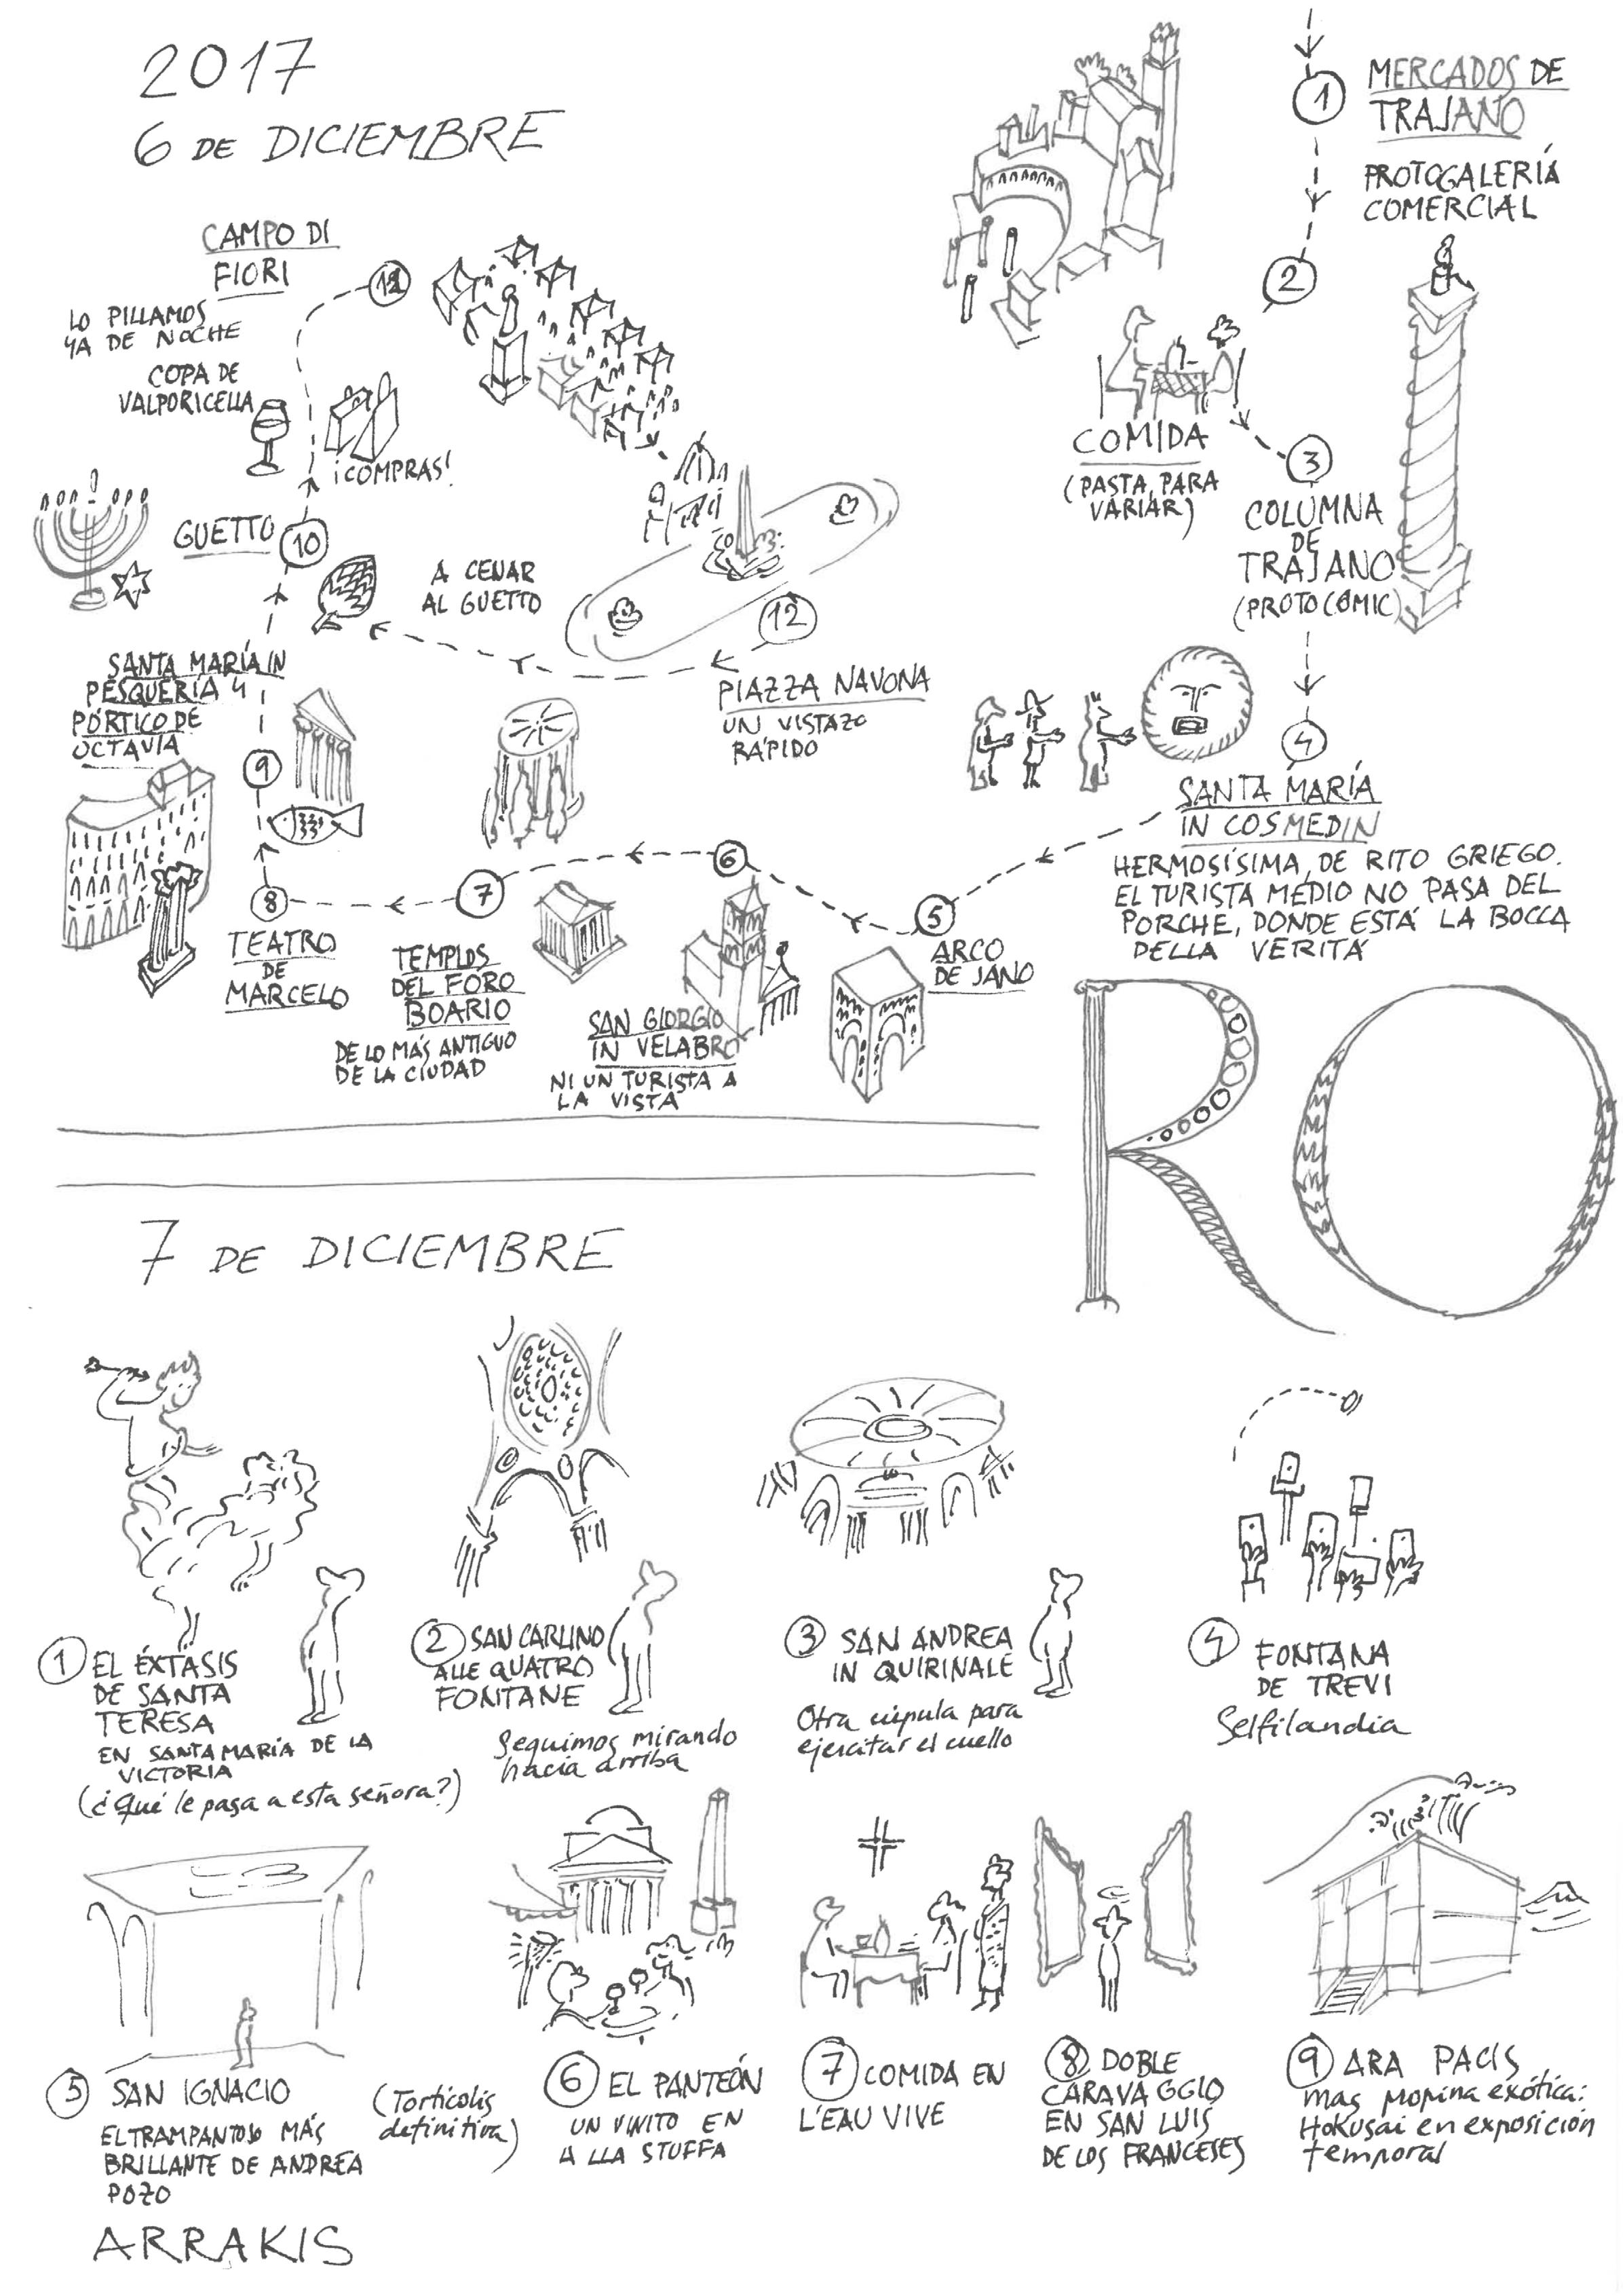 2017
6 DE DICIEMBRE
1
MERCADOS DE
TRAJANO
PROTOGALERÍA
COMERCIAL
2
COMIDA
(PASTA, PARA
VARIAR)
3
COLUMNA
DE
TRAJANO
(PROTOCÓMIC)
4
SANTA MARÍA
IN COSMEDIN
HERMOSÍSIMA, DE RITO GRIEGO.
EL TURISTA MEDIO NO PASA DEL
PORCHE, DONDE ESTÁ LA BOCCA
DELLA VERITÁ
5
ARCO
DE JANO
6
SAN GIORGIO
IN VELABRO
NI UN TURISTA A
LA VISTA
7
TEMPLOS
DEL FORO
BOARIO
DE LO MÁS ANTIGUO
DE LA CIUDAD
8
TEATRO
DE
MARCELO
9
SANTA MARÍA IN
PESQUERÍA Y
PÓRTICO DE
OCTAVIA
10
GUETTO
¡COMPRAS!
COPA DE
VALPORICELLA
11
CAMPO DI
FIORI
LO PILLAMOS
YA DE NOCHE
12
PIAZZA NAVONA
UN VISTAZO
RÁPIDO
A CENAR
AL GUETTO
RO
7 DE DICIEMBRE
1 EL ÉXTASIS
DE SANTA
TERESA
EN SANTA MARÍA DE LA
VICTORIA
(¿Qué le pasa a esta señora?)
2 SAN CARLINO
ALLE QUATRO
FONTANE
Seguimos mirando
hacia arriba
3 SAN ANDREA
IN QUIRINALE
Otra cúpula para
ejercitar el cuello
4 FONTANA
DE TREVI
Selfilandia
5 SAN IGNACIO
EL TRAMPANTOJO MÁS
BRILLANTE DE ANDREA
POZO
(Tortícolis
definitiva)
6 EL PANTEÓN
UN VINITO EN
A LLA STUFFA
7 COMIDA EN
L'EAU VIVE
8 DOBLE
CARAVAGGIO
EN SAN LUIS
DE LOS FRANCESES
9 ARA PACIS
mas propina exótica:
Hokusai en exposición
temporal
ARRAKIS